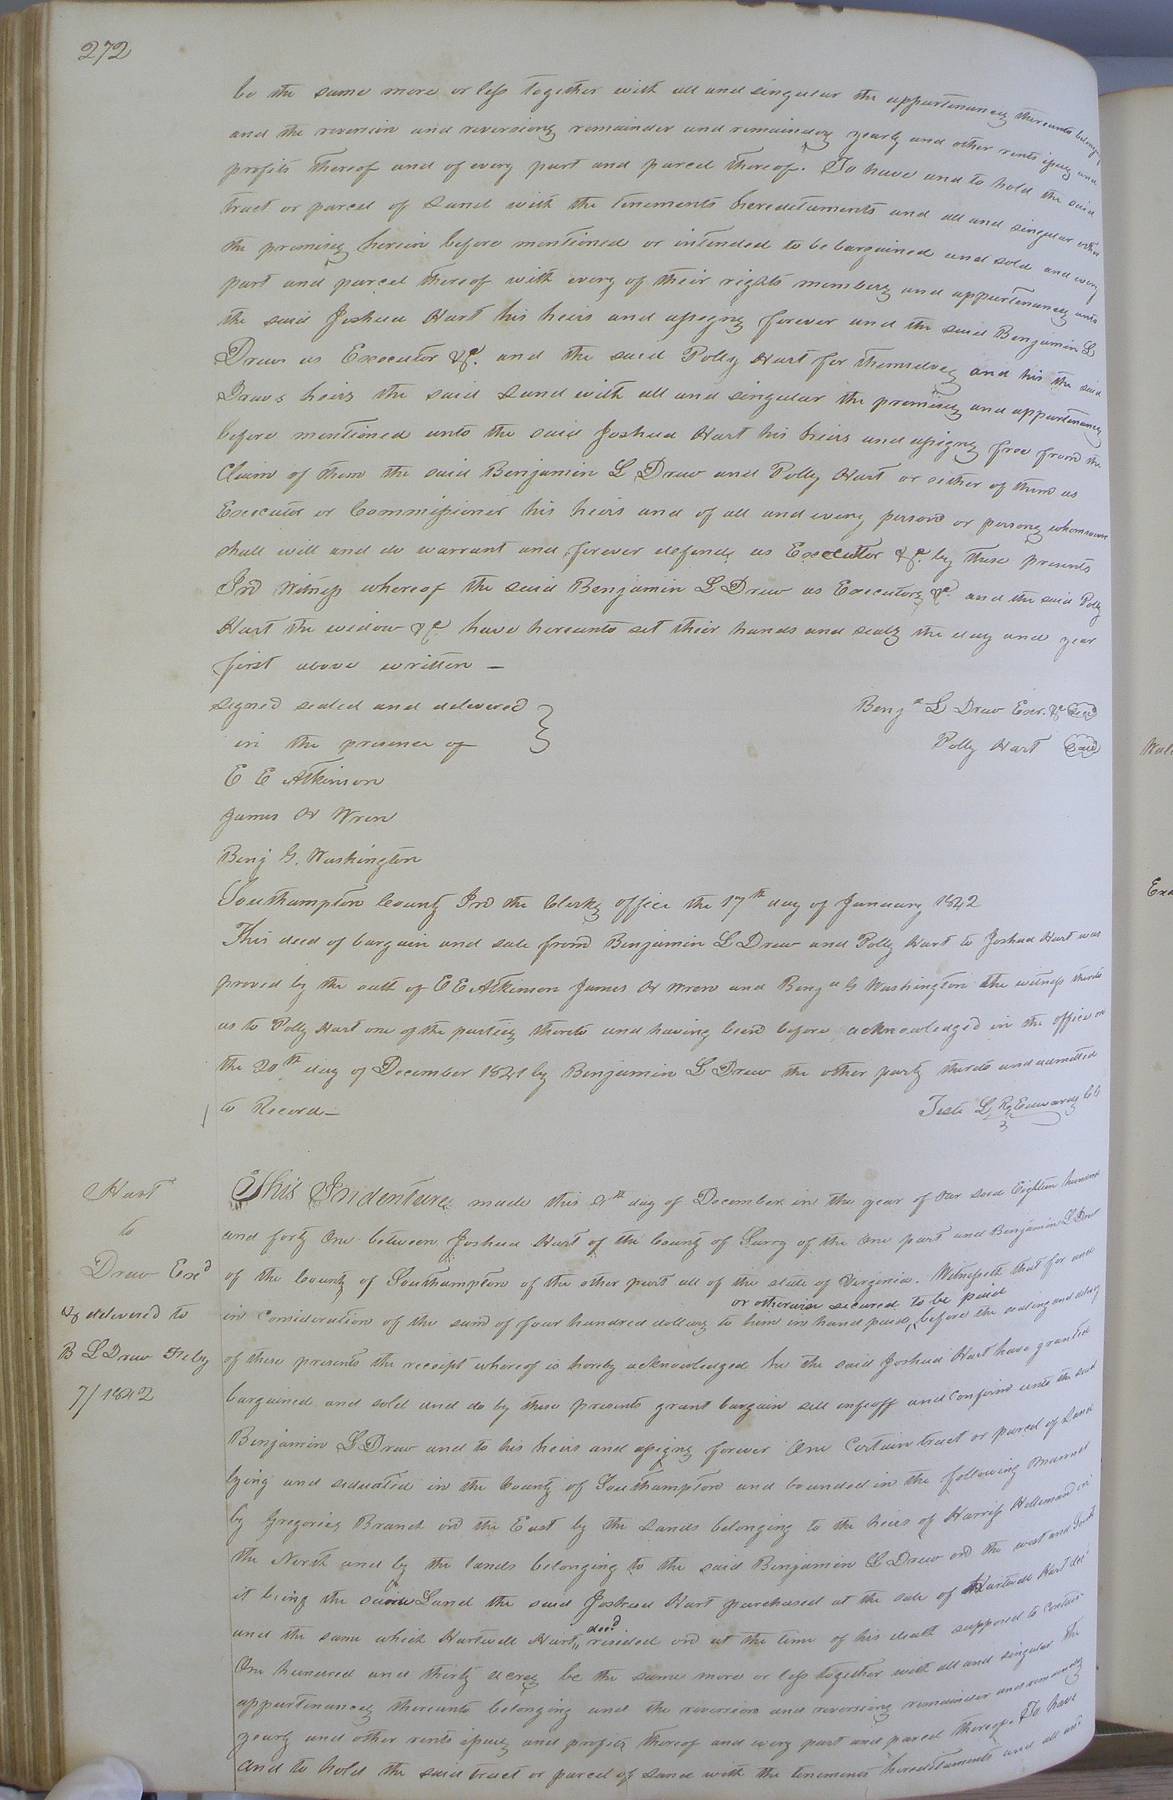 272
be the same more or less together with all and singular the appurtenances thereunto belong
and the reversion and reversions remainder and remainders yearly and other rents issues and
profits thereof and of every part and parcel thereof. To have and to hold the said
tract or parcel of Land with the tenements hereditaments and all and singular other
the premises herein before mentioned or intended to be bargained and sold and every
part and parcel thereof with every of their rights members and appurtenances unto
the said Joshua Hart his heirs and assigns forever and the said Benjamin L
Drew as Executor &c. and the said Polly Hart for themselves and his the said
Drews heirs the said Land with all and singular the premises and appurtenances
before mentioned unto the said Joshua Hart his heirs and assigns free from the
Claim of them the said Benjamin L Drew and Polly Hart or either of them as
Executor or Commissioner his heirs and of all and every person or persons whomsoever
shall will and do warrant and forever defend as Executor &c. by these presents
In Witness whereof the said Benjamin L Drew as Executors &c. and the said Polly
Hart the widow &c have hereunto set their hands and seals the day and year
first above written –
signed sealed and delivered
Benja L Drew Exer. &c Seal
in the presence of
Polly Hart Seal
E E Atkinson
James H Wren
Benj G. Washington
Southampton County In the Clerks office the 17th day of January 1842
This deed of bargain and sale from Benjamin L Drew and Polly Hart to Joshua Hart was
proved by the oath of E E Atkinson James H Wren and Benja G Washington the witness thereto
as to Polly Hart one of the parties thereto and having been before acknowledged in the office on
the 20th day of December 1841 by Benjamin L Drew the other party thereto and admitted
to Record –
Teste L R Edwards CC
Hart
to
Drew Exd
& delivered to
B L Drew Feby
7/1842
This Indenture made this day of December in the year of Our Lord Eighteen hundred
and forty One between Joshua Hart of the County of Surry of the One part and Benjamin L Drew
of the County of Southampton of the other part all of the state of Virginia. Witnesseth that for and
or otherwise secured to be paid
in Consideration of the sum of four hundred dollars to him in hand paid, before the sealing and delivery
of these presents the receipt whereof is hereby acknowledged he the said Joshua Hart have granted
bargained and sold and do by these presents grant bargain sell enfeoff and Confirm unto the said
Benjamin L Drew and to his heirs and assigns forever One Certain tract or parcel of Land
lying and situated in the County of Southampton and bounded in the following manner
by Gregories Branch on the East by the Lands belonging to the heirs of Harriss Holleman on
the North and by the lands belonging to the said Benjamin L Drew on the west and South
it being the same Land the said Joshua Hart purchased at the sale of Hartwell Hart decd
decd
and the same which Hartwell Hart, resided on at the time of his death supposed to contain
One hundred and thirty acres be the same more or less together with all and singular the
appurtenances thereunto belonging and the reversion and reversions remainder and remainders
yearly and other rents issues and profits thereof and every part and parcel thereof. To have
and to hold the said tract or parcel of Land with the tenements hereditaments and all and